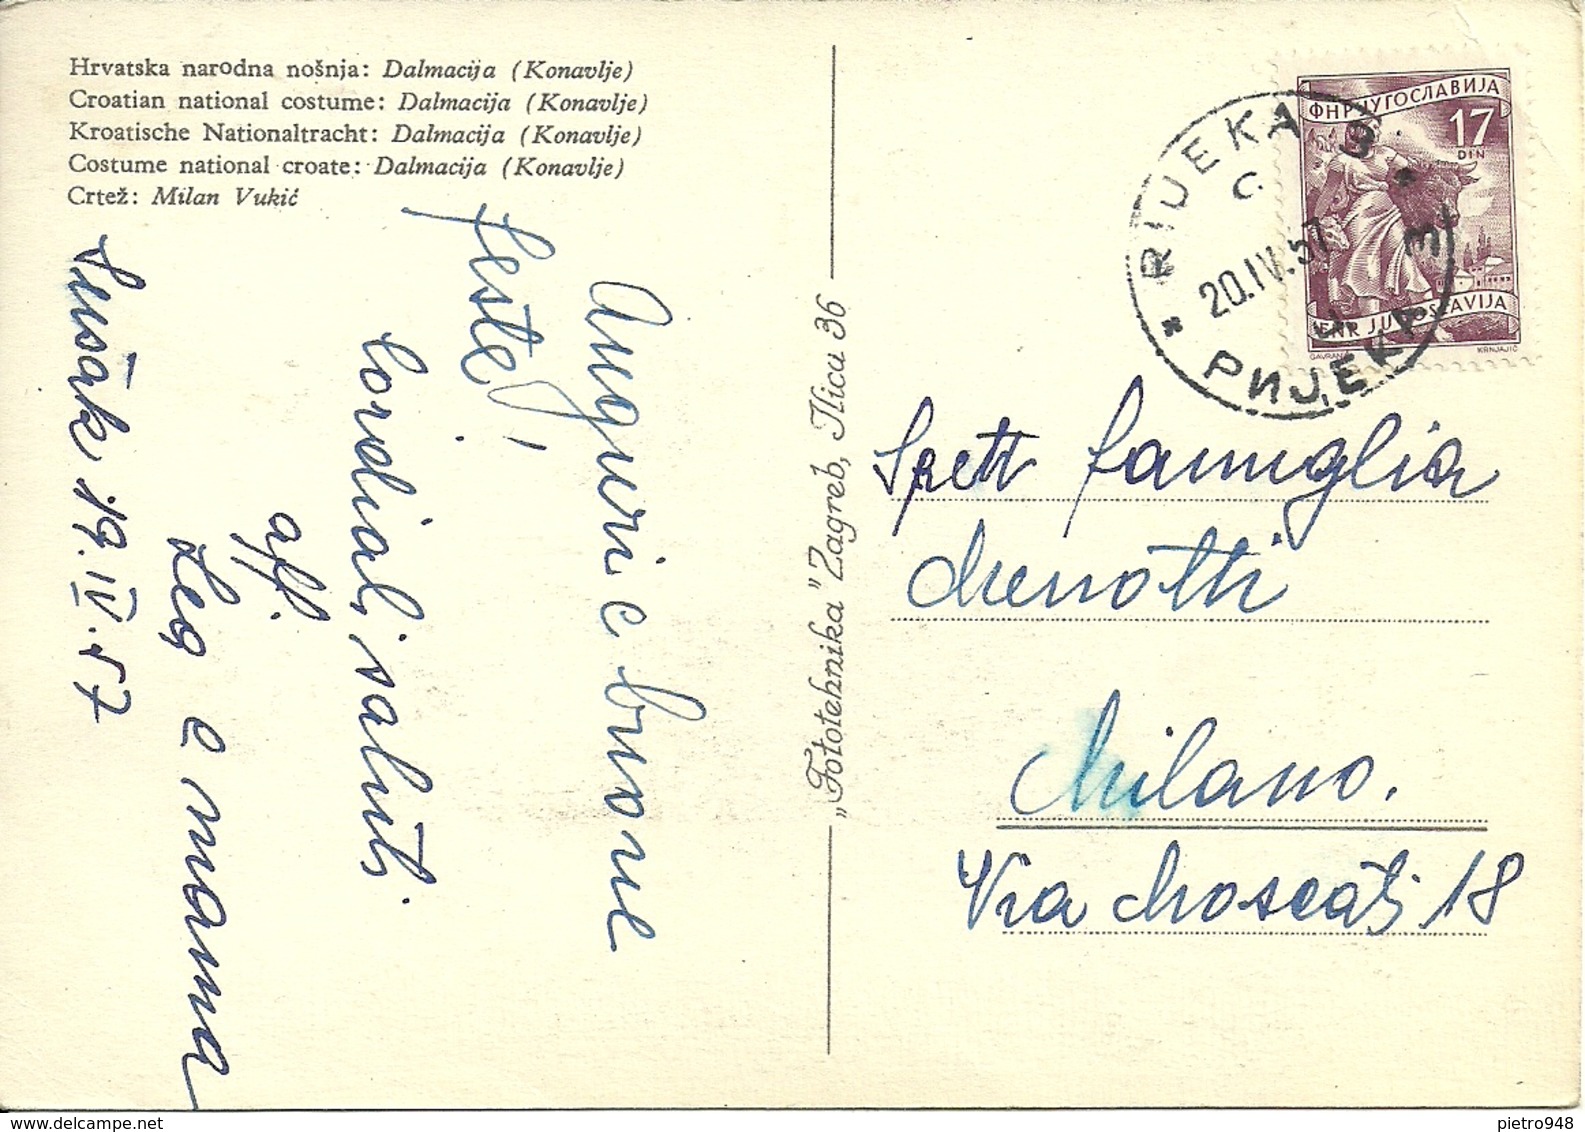 Hrvatska narodna nošnja: Dalmacija (Konavlje)
Croatian national costume: Dalmacija (Konavlje)
Kroatische Nationaltracht: Dalmacija (Konavlje)
Costume national croate: Dalmacija (Konavlje)
Crtež: Milan Vukić
Auguri e buone
feste!
Cordiali saluti
aff.
e mamma
Sušak 19.IV.57
„Fototehnika" Zagreb, Ilica 36
ФНР ЈУГОСЛАВИЈА
17
DIN
FNR JUGOSLAVIJA
GAVRANIĆ
KRNJAJIĆ
RIJEKA 3
C
20.IV.57
РИЈЕКА 3
Spett famiglia
Menotti
Milano.
Via Moscati 18
pietro948